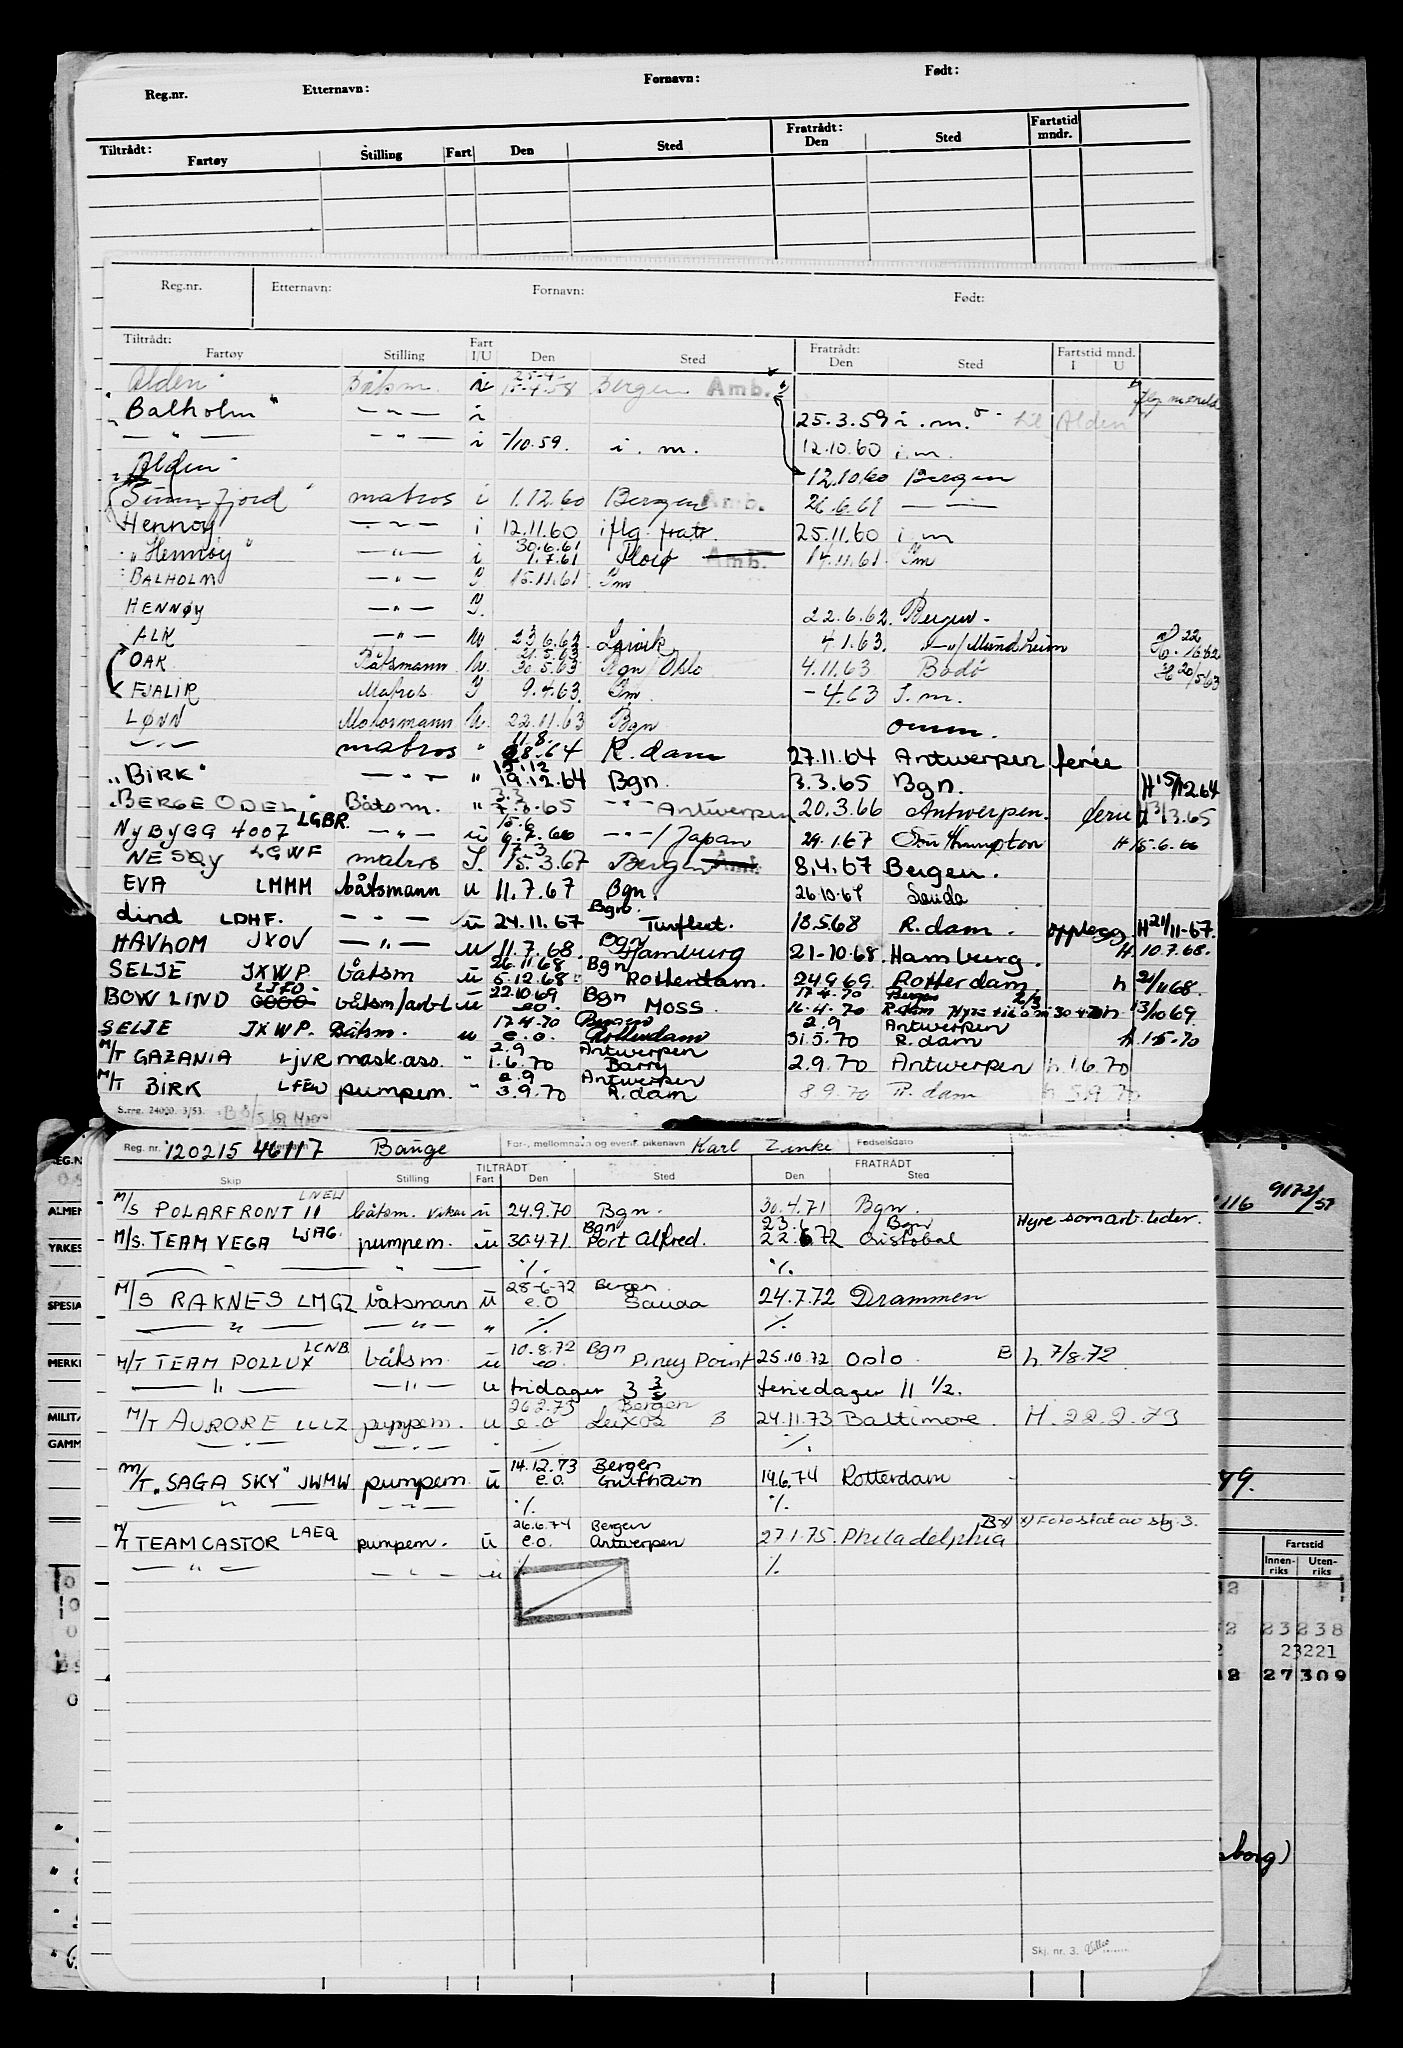 Reg.nr. Etternavn: Fornavn: Født:
Tiltrådt: Fratrådt: Fartstid mndr.
Fartøy Stilling Fart Den Sted Den Sted
Reg.nr. Etternavn: Fornavn: Født:
Tiltrådt: Fratrådt: Fartstid mnd.
Fartøy Stilling Fart I/U Den Sted Den Sted I U
Alden" Båtsm. i 25-4- 58 Bergen Amb.
"Balholm" — " — i 25.3.59 i.m. til Alden
— " — — " — i -/10.59. i.m. 12.10.60 i.m.
"Alden" 12.10.60 Bergen
"Sunnfjord" matros i 1.12.60 Bergen Amb. 26.6.61 — " —
Hennøy — " — i 12.11.60 iflg. fratr. 25.11.60 i m
"Hennøy" — " — i 30.6.61 1.7.61 Florø Amb. 14.11.61 Im
BALHOLM — " — I 15.11.61 Im
HENNØY — " — I. 22.6.62. Bergen.
ALK — " — U. 23.6.62 Larvik 4.1.63. — " — / Mundheim
OAK Båtsmann U. 30.5.63 Bgn / Oslo 4.11.63 Bodö H 20/5.63
FJALIR Matros I 9.4.63. Im. -4.63 I.m.
LØNN Motormann U. 22.11.63 Bgn omm.
— " — matros " 11.8. 64 R.dam 27.11.64 Antwerpen ferie
"BIRK" — " — " 15.12 19.12.64 Bgn. 3.3.65 Bgn. H 15/12.64
"BERGE ODEL" LGBR. Båtsm. " 3.3 .3.65 — " — Antwerpen 20.3.66 Antwerpen. ferie H 3/3.65
NyByGG 4007 — " — u 15.6 6.7.66 — " — / Japan 24.1.67 H 15-6.66
NESØY LGWF matros I. 17.3 15.3.67 Bergen Amb. 8.4.67 Bergen.
EVA LMMM båtsmann u 11.7.67 Bgn. 26.10.67 Sauda
dind LDHF. — " — u 24.11.67 Bgn. 18.5.68 R.dam. opplegg H 21/11-67.
HAVHOM JXOV — " — u 11.7.68. Bgn Hamburg 21-10-68. Hamburg. H. 10.7.68.
SELJE JXWP. båtsm u 26.11.68 5.12.68 Bgn Rotterdam. 24.9.69 Rotterdam h 21/11 68.
BOW LIND LJFO. båtsm/arb.l u 22.10.69 e.o. Bgn MOSS 17-4-70 16-4-70 Bergen R.dam h 13/10 69.
SELJE JXWP. Båtsm. u 17.4.70 e.o. Bergen Rotterdam 2.9 31.5.70 Antwerpen R.dam h. 15-70
M/T GAZANIA LjVR mask.ass. " 2.9 1.6.70 Antwerpen Barry 2.9.70 Antwerpen h 1.6.70
M/T BIRK LFEW pumpem. " 2.9 3.9.70 Antwerpen R.dam 8.9.70 R.dam h 3.9.70
S.reg. 24000. 3/53.
Reg. nr. 120215 46117 Bauge For-, mellomnavn og event. pikenavn Karl Zinke Fødselsdato
TILTRÅDT FRATRÅDT
Skip Stilling Fart Den Sted Den Sted
M/S POLARFRONT II LNEW båtsm. vikar u 24.9.70 Bgn. 30.4.71 Bgn.
M/S. TEAM VEGA LJAG. pumpem. u 30.4.71 Bgn Port Alfred. 23.6 22.6.72 Bgn Cristobal Hyre som arb.leder.
— " — %. %.
M/S RAKNES LMGZ båtsmann u 28-6-72 e.o Bergen Sauda 24.7.72 Drammen
— " — — " — " % %.
M/T TEAM POLLUX LCNB båtsm. u 10.8.72 eo. Bgn P.ney Point 25.10.72 Oslo B h 7/8.72
— " — — " — u fridager 3 3/5 feriedager 11 1/2.
M/T AURORE LLLZ pumpem. u 26.2.73 e.o Bergen Leixos B 24.11.73 Baltimore. H. 22.2.73
— " — — " — " % %.
M/T "SAGA SKY" JWMW pumpem. u 14.12.73 e.o. Bergen Gulfhavn 14.6.74 Rotterdam
— " — — " — %. %.
M/T TEAM CASTOR LAEQ pumpem. u 26.6.74 e.o. Bergen Antwerpen 27.1.75. Philadelphia B x) x) Fotostat av sbg. 3.
— " — — " — u % %.
Skj. nr. 3.
REG.N
ALMEN
YRKES
SPESIA
MERKI
MILITA
GAMM
116 9172/57
49.
Fartstid
Innen-riks Uten-riks
23238
23221
27309
sborg)